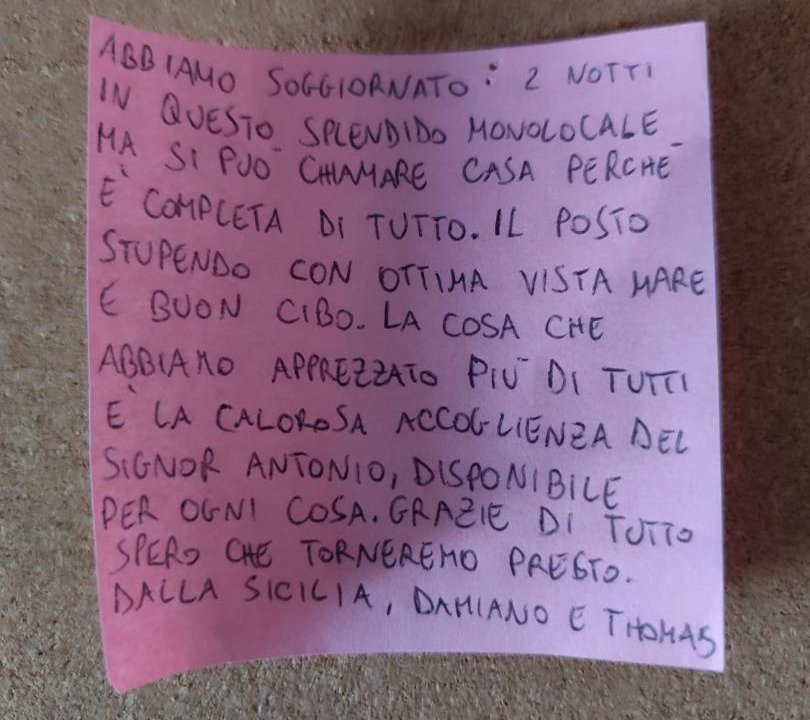 ABBIAMO SOGGIORNATO: 2 NOTTI
IN QUESTO SPLENDIDO MONOLOCALE
MA SI PUÒ CHIAMARE CASA PERCHÈ
È COMPLETA DI TUTTO. IL POSTO
STUPENDO CON OTTIMA VISTA MARE
E BUON CIBO. LA COSA CHE
ABBIAMO APPREZZATO PIÙ DI TUTTI
È LA CALOROSA ACCOGLIENZA DEL
SIGNOR ANTONIO, DISPONIBILE
PER OGNI COSA. GRAZIE DI TUTTO
SPERO CHE TORNEREMO PRESTO.
DALLA SICILIA, DAMIANO E THOMAS